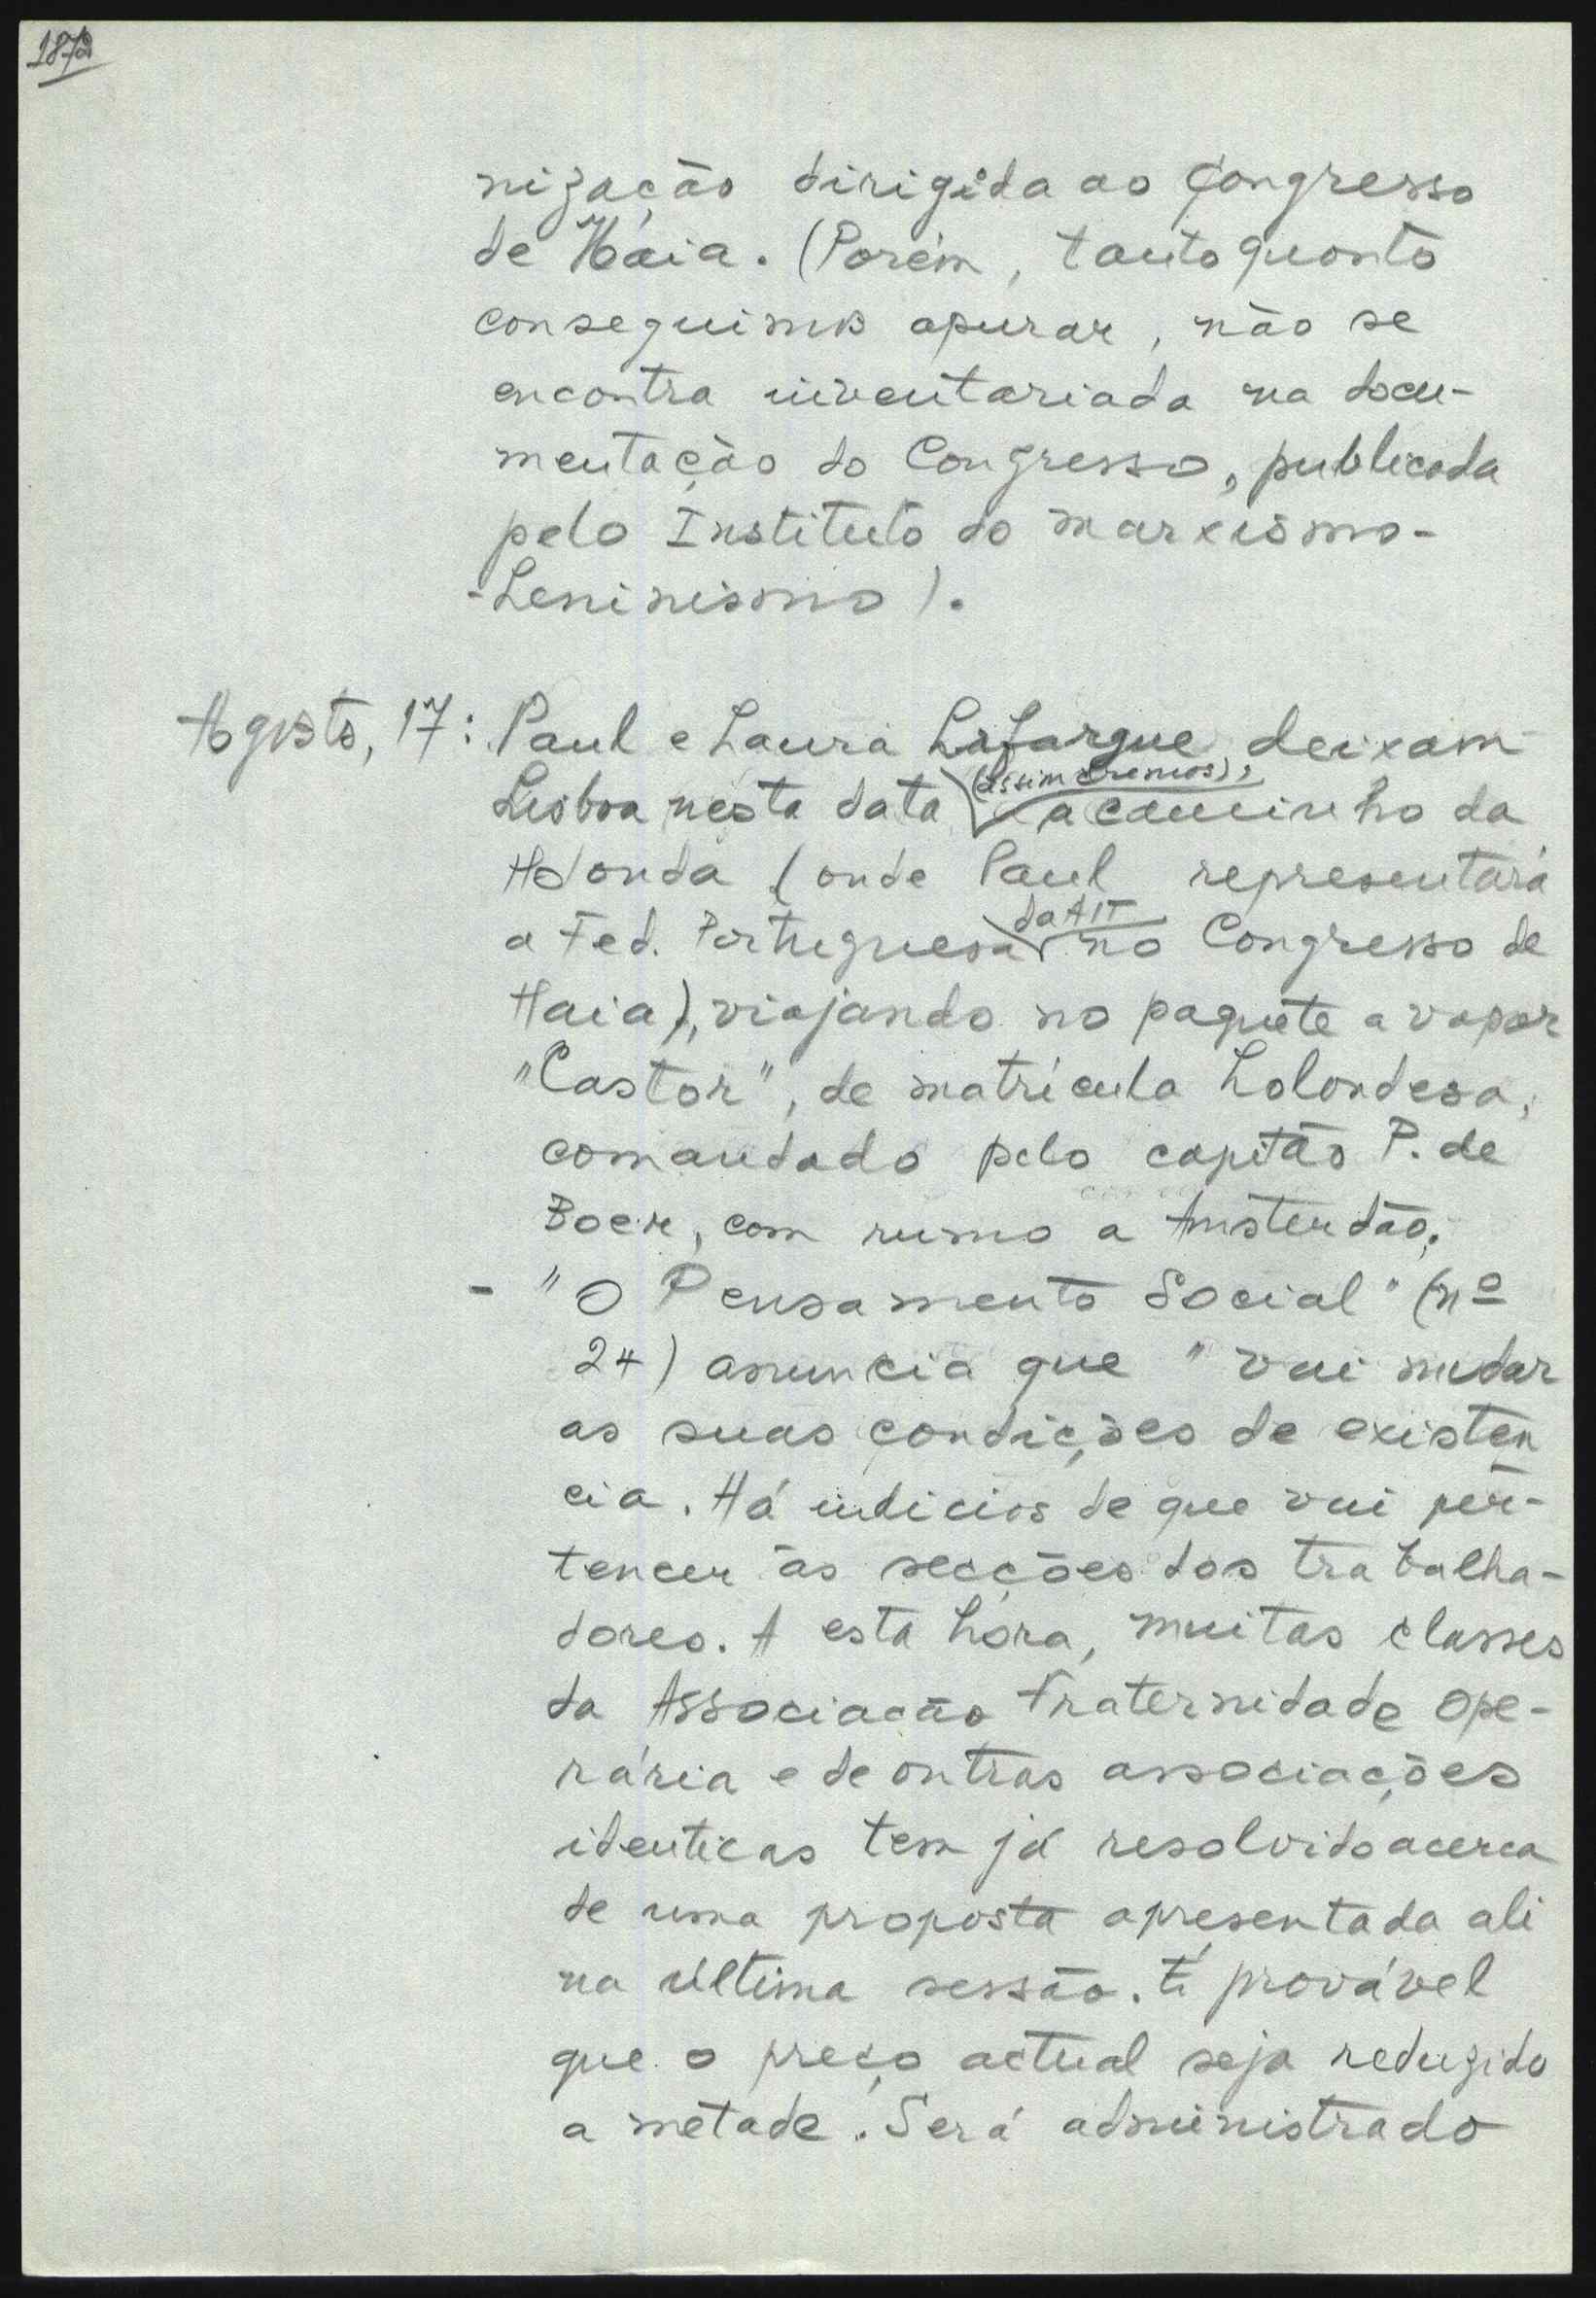 1872
nização dirigida ao Congresso
de Haia. (Porém, tanto quanto
conseguimos apurar, não se
encontra inventariada na docu-
mentação do Congresso, publicada
pelo Instituto do marxismo-
-Leninismo).
Agosto, 17: Paul e Laura Lafargue deixam
(assim cremos),
Lisboa nesta data a caminho da
Holanda (onde Paul representará
da AIT
a Fed. Portuguesa no Congresso de
Haia), viajando no paquete a vapor
"Castor", de matrícula holandesa,
comandado pelo capitão P. de
Boer, com rumo a Amsterdão.
- "O Pensamento Social" (nº
24) anuncia que "vai mudar
as suas condições de existen
cia. Há indicios de que vai per-
tencer às secções dos trabalha-
dores. A esta hora, muitas classes
da Associação Fraternidade Ope-
rária e de outras associações
identicas tem já resolvido acerca
de uma proposta apresentada ali
na última sessão. É provável
que o preço actual seja reduzido
a metade. Será administrado